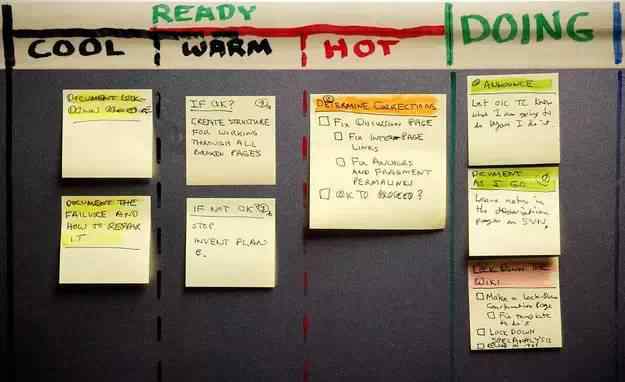 READY
COOL
WARM
HOT
DOING
DOCUMENT LOCK-
DOWN PROCEDURE
DOCUMENT THE
FAILURE AND
HOW TO REPAIR
IT
IF OK?
CREATE STRUCTURE
FOR WORKING
THROUGH ALL
BROKEN PAGES
IF NOT OK?
STOP
INVENT PLAN
DETERMINE CORRECTIONS
FIX DISCUSSION PAGE
FIX INTER-PAGE
LINKS
FIX ANCHORS
AND FRAGMENT
PERMALINKS
OK TO PROCEED?
ANNOUNCE
Let OIC TC know
what I am going to
do before I do it
DOCUMENT
AS I GO
Leave notes in
the discussion
pages on SVN.
LOCK DOWN THE
WIKI
Make a Lock-Down
Confirmation Page
Fix template
to do it
LOCK DOWN